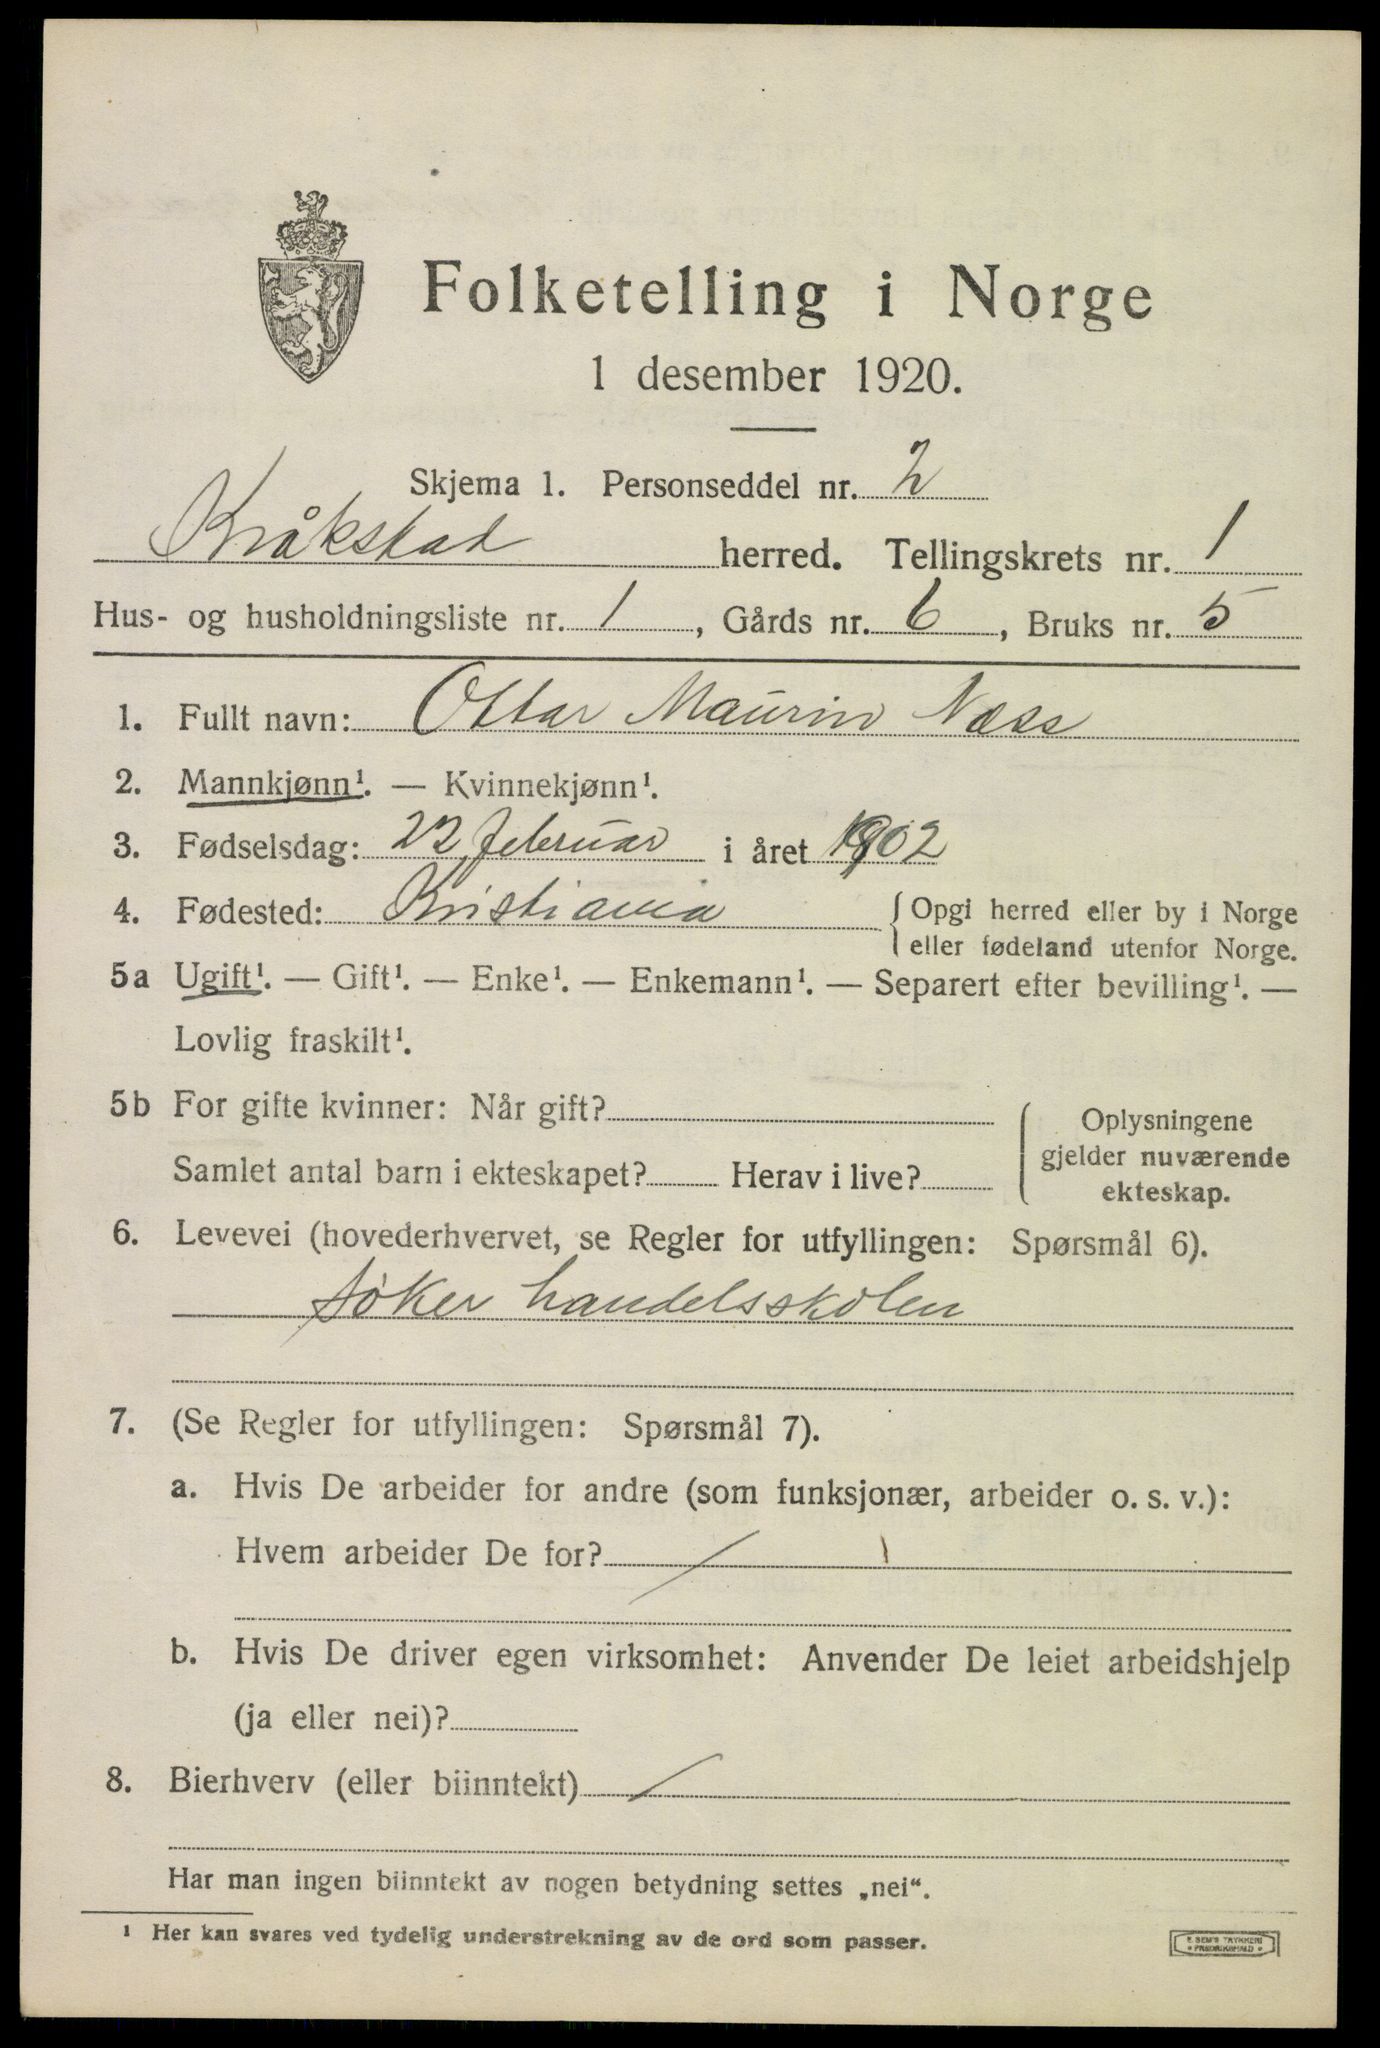 Folketelling i Norge
1 desember 1920.
Skjema 1. Personseddel nr. 2
Kråkstad herred. Tellingskrets nr. 1
Hus- og husholdningsliste nr. 1, Gårds nr. 6, Bruks nr. 5
1. Fullt navn: Ottar Maurin Næss
2. Mannkjønn¹. — Kvinnekjønn¹.
3. Fødselsdag: 22 februar i året 1902
4. Fødested: Kristiania {Opgi herred eller by i Norge
eller fødeland utenfor Norge.
5a Ugift¹. — Gift¹. — Enke¹. — Enkemann¹. — Separert efter bevilling¹. —
Lovlig fraskilt¹.
5b For gifte kvinner: Når gift?
Samlet antal barn i ekteskapet? Herav i live?
Oplysningene
gjelder nuværende
ekteskap.
6. Levevei (hovederhvervet, se Regler for utfyllingen: Spørsmål 6).
søker handelsskolen
7. (Se Regler for utfyllingen: Spørsmål 7).
a. Hvis De arbeider for andre (som funksjonær, arbeider o. s. v.):
Hvem arbeider De for? /
b. Hvis De driver egen virksomhet: Anvender De leiet arbeidshjelp
(ja eller nei)?
8. Bierhverv (eller biinntekt) /
Har man ingen biinntekt av nogen betydning settes „nei“.
¹ Her kan svares ved tydelig understrekning av de ord som passer.
E SEM'S TRYKKERI
FREDRIKSHALD